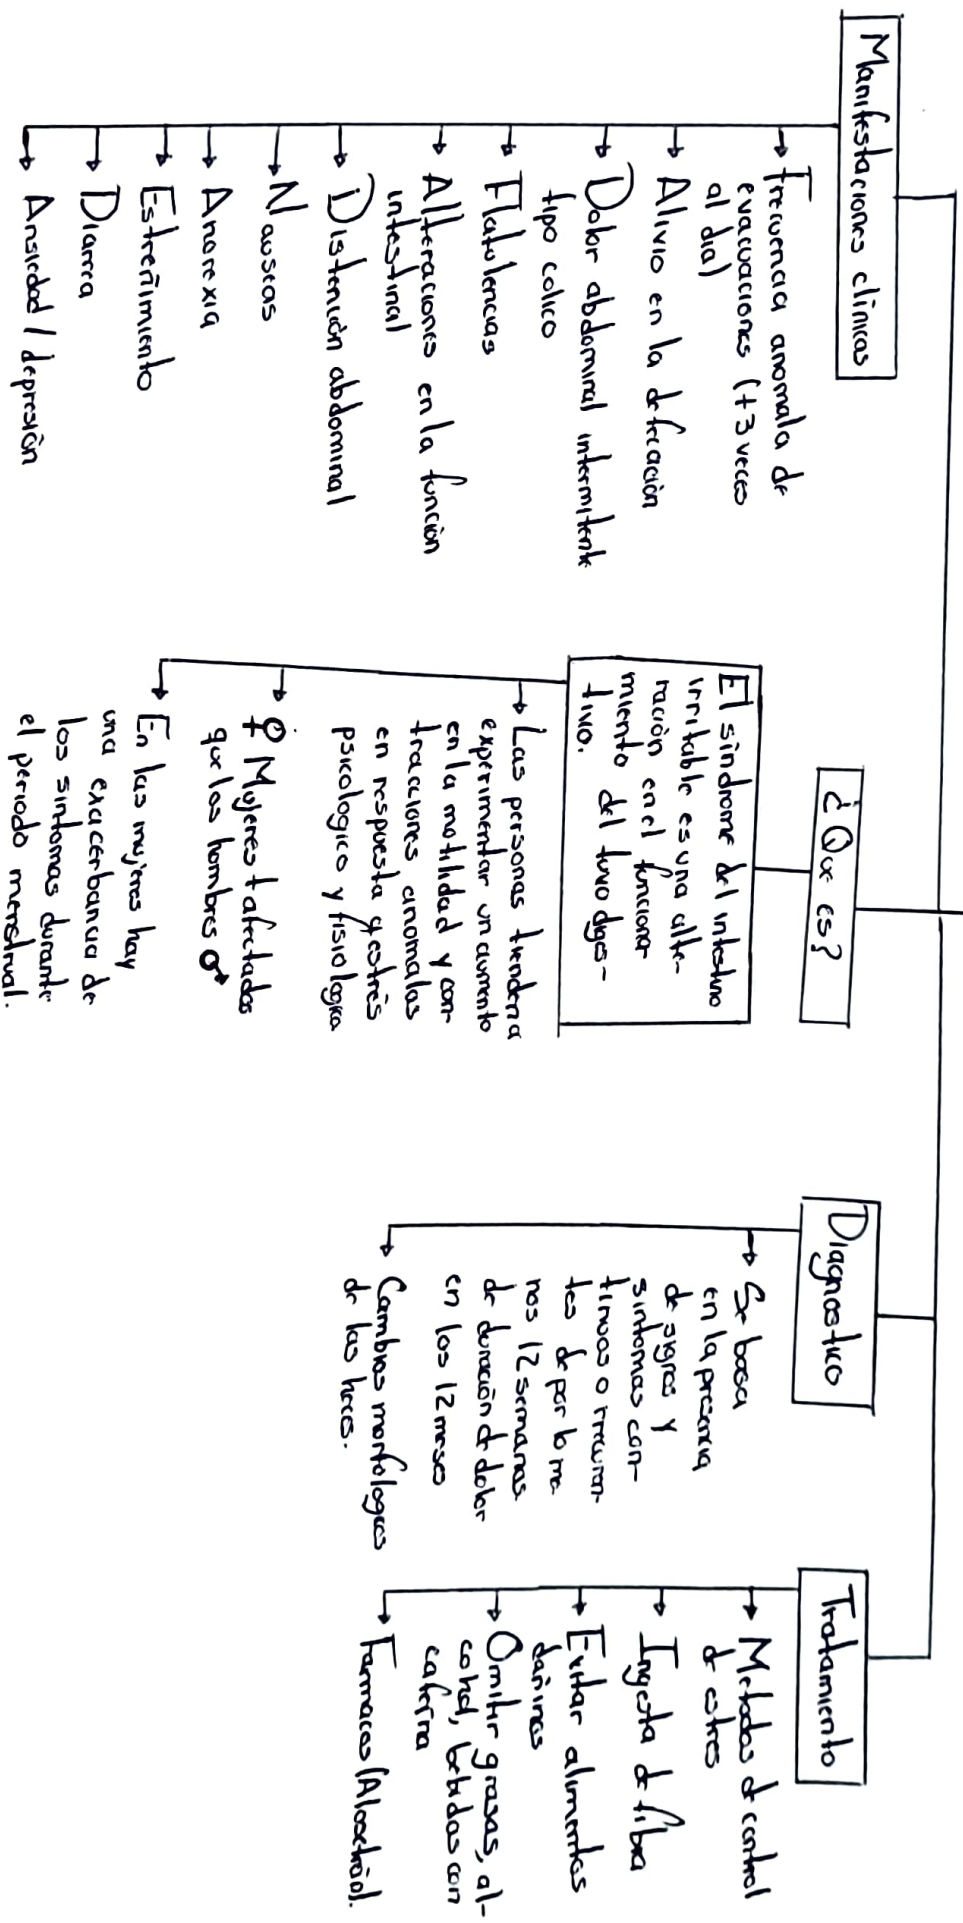 Manifestaciones clínicas
Frecuencia anomala de
evacuaciones (+3 veces
al dia)
Alivio en la defecación
Dolor abdominal intermitente
tipo colico
Flatulencias
Alteraciones en la función
intestinal
Distención abdominal
Nauseas
Anorexia
Estreñimiento
Diarrea
Ansiedad / depresión
¿Que es?
El síndrome del intestino
irritable es una alte-
ración en el funciona-
miento del tuvo diges-
tivo.
Las personas tienden a
experimentar un aumento
en la motilidad y con-
tracciones anomalas
en respuesta a estrés
psicologico y fisiologico
♀ Mujeres + afectadas
que los hombres ♂
En las mujeres hay
una exacerbancia de
los sintomas durante
el periodo menstrual.
Diagnostico
Se basa
en la presencia
de signos y
sintomas con-
tinuos o recurren-
tes de por lo me-
nos 12 semanas
de duración de dolor
en los 12 meses
Cambios morfologicos
de las heces.
Tratamiento
Metodos de control
de estres
Ingesta de fibra
Evitar alimentos
dañinos
Omitir grasas, al-
cohol, bebidas con
cafeina
Farmacos (Alosetrón).